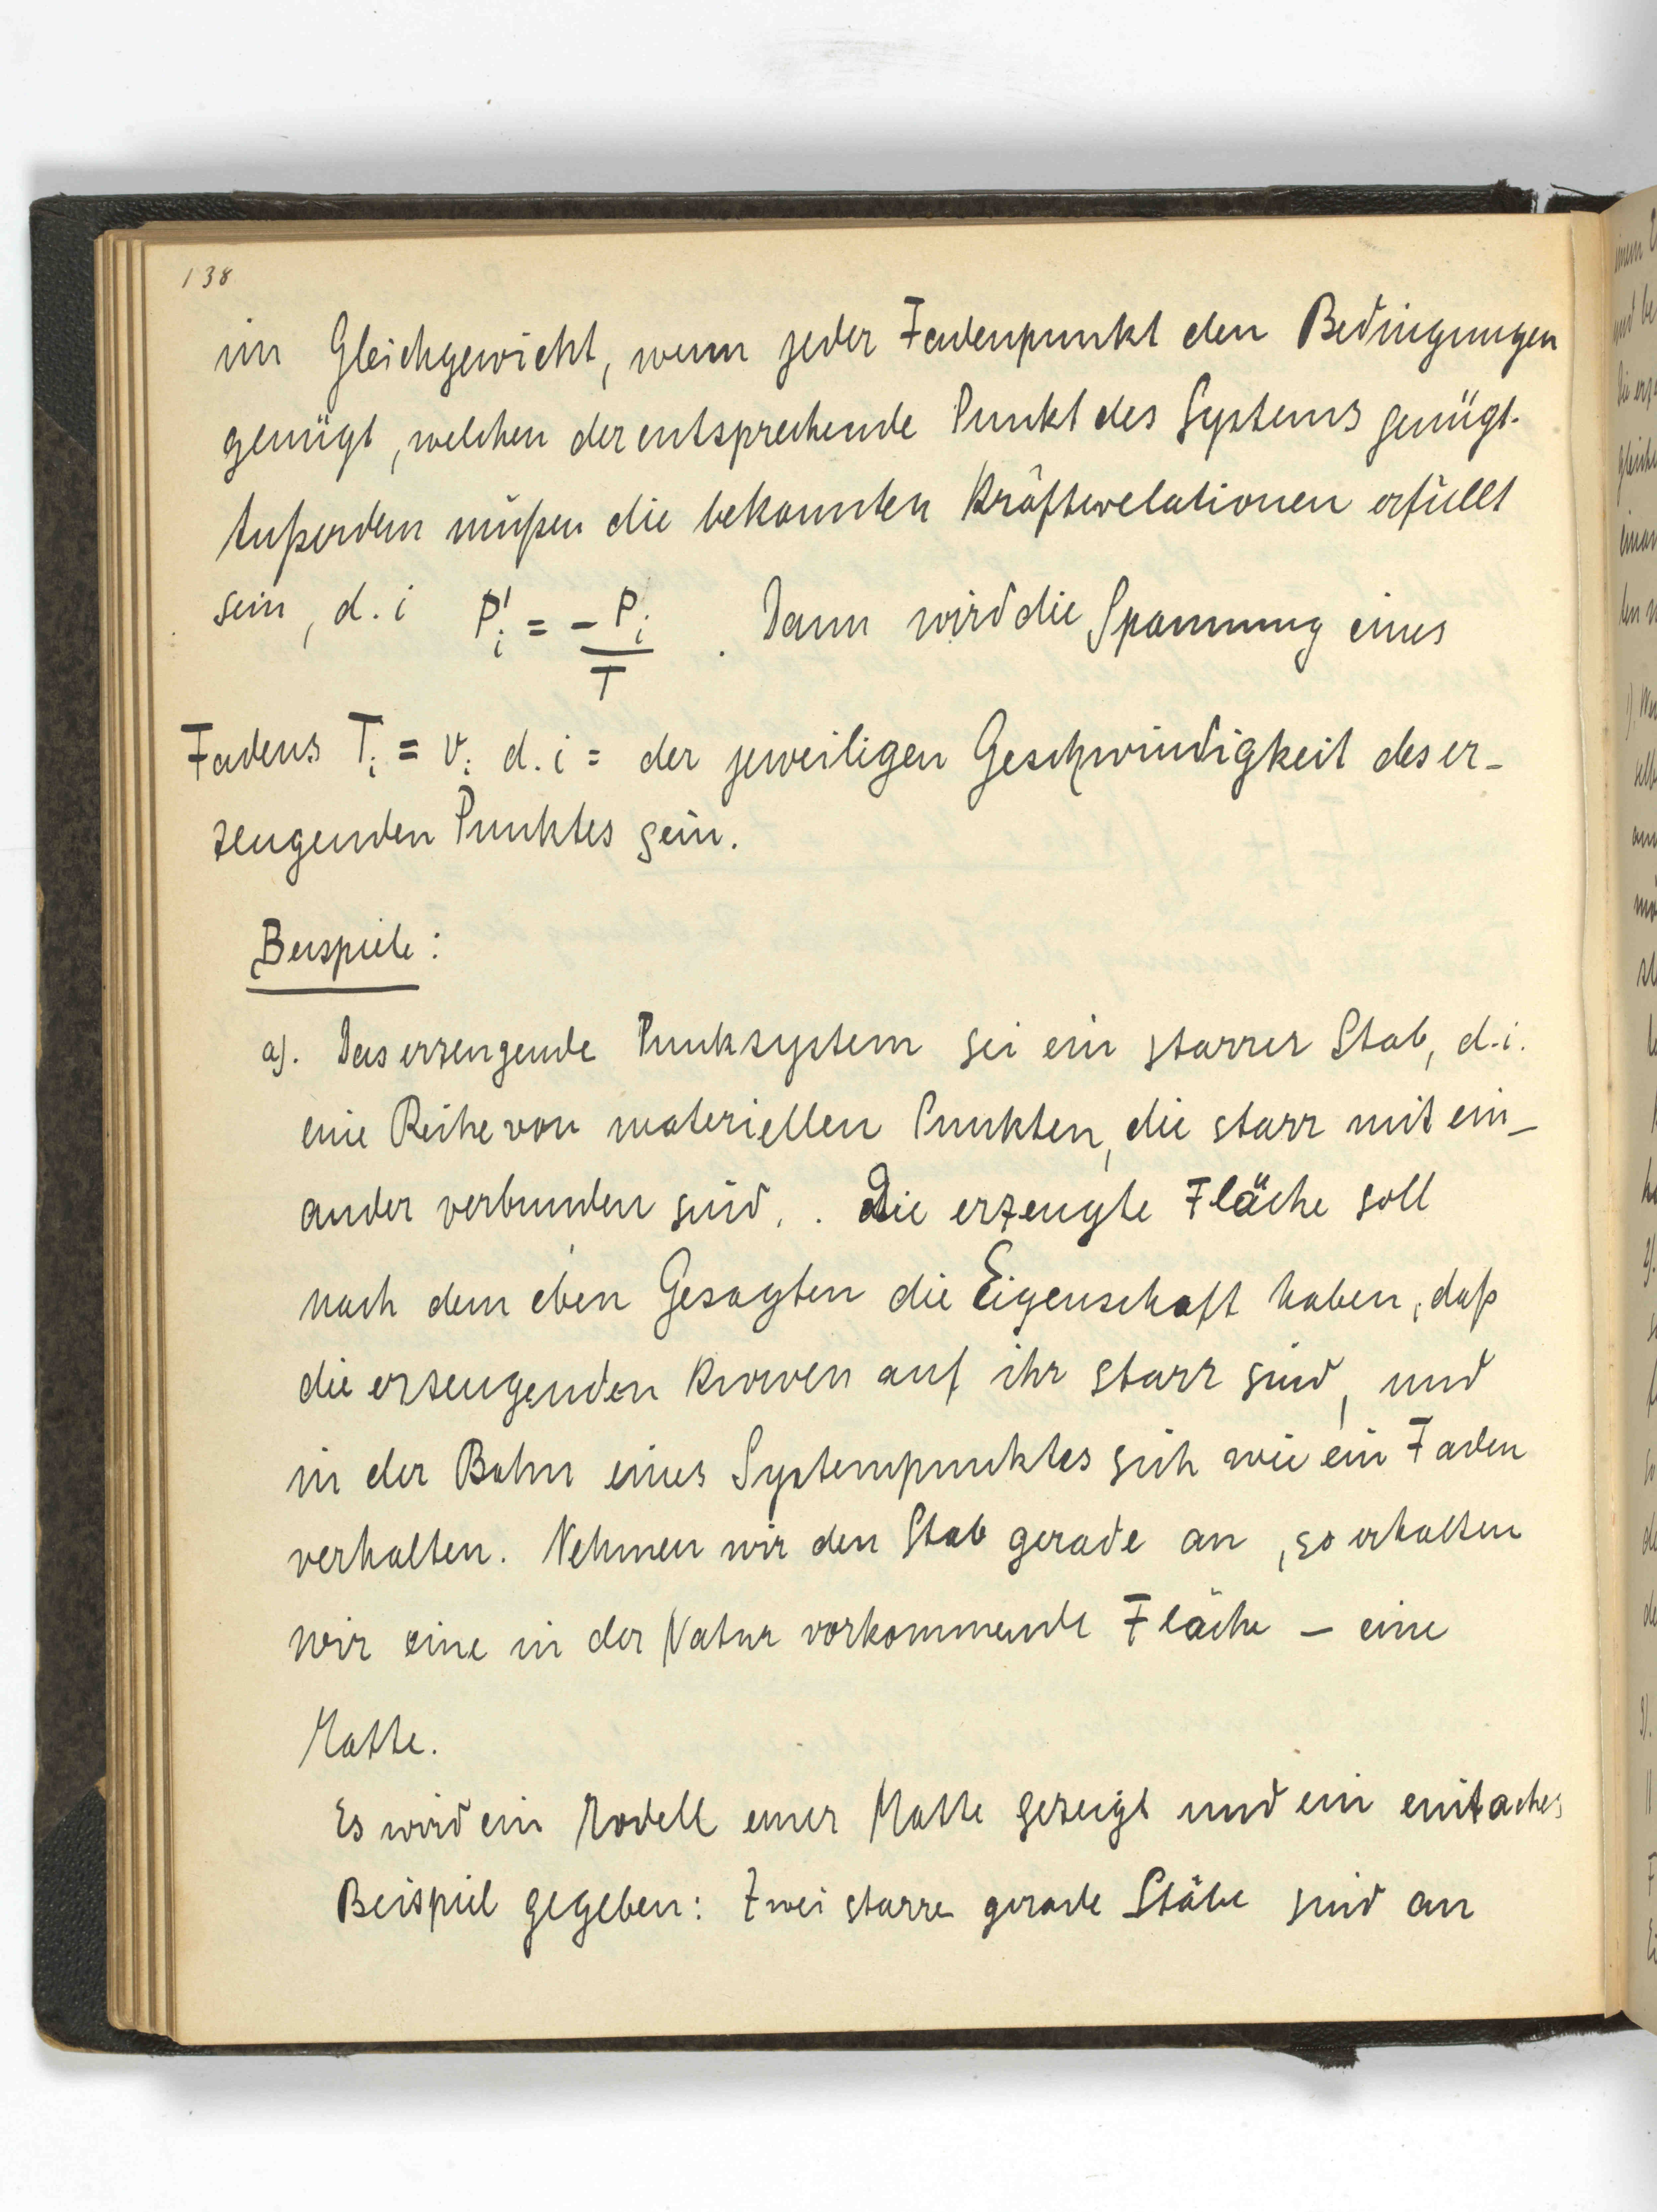 138
im Gleichgewicht, wenn jeder Fadenpunkt den Bedingungen
genügt, welchen der entsprechende Punkt des Systems genügt.
Außerdem müßen die bekannten Kräfterelationen erfüllt
sein, d. i P'_i = - P_i / T . Dann wird die Spannung eines
Fadens T_i = v_i d. i = der jeweiligen Geschwindigkeit des er-
zeugenden Punktes sein.
Beispiele:
a). Das erzeugende Punksystem sei ein starrer Stab, d. i.
eine Reihe von materiellen Punkten, die starr mit ein-
ander verbunden sind. . Die erzeugte Fläche soll
nach dem eben Gesagten die Eigenschaft haben, daß
die erzeugenden Kurven auf ihr starr sind, und
in der Bahn eines Systempunktes sich wie ein Faden
verhalten. Nehmen wir den Stab gerade an, so erhalten
wir eine in der Natur vorkommende Fläche – eine
Matte.
Es wird ein Modell einer Matte gezeigt und ein einfaches
Beispiel gegeben: Zwei starre gerade Stäbe sind an